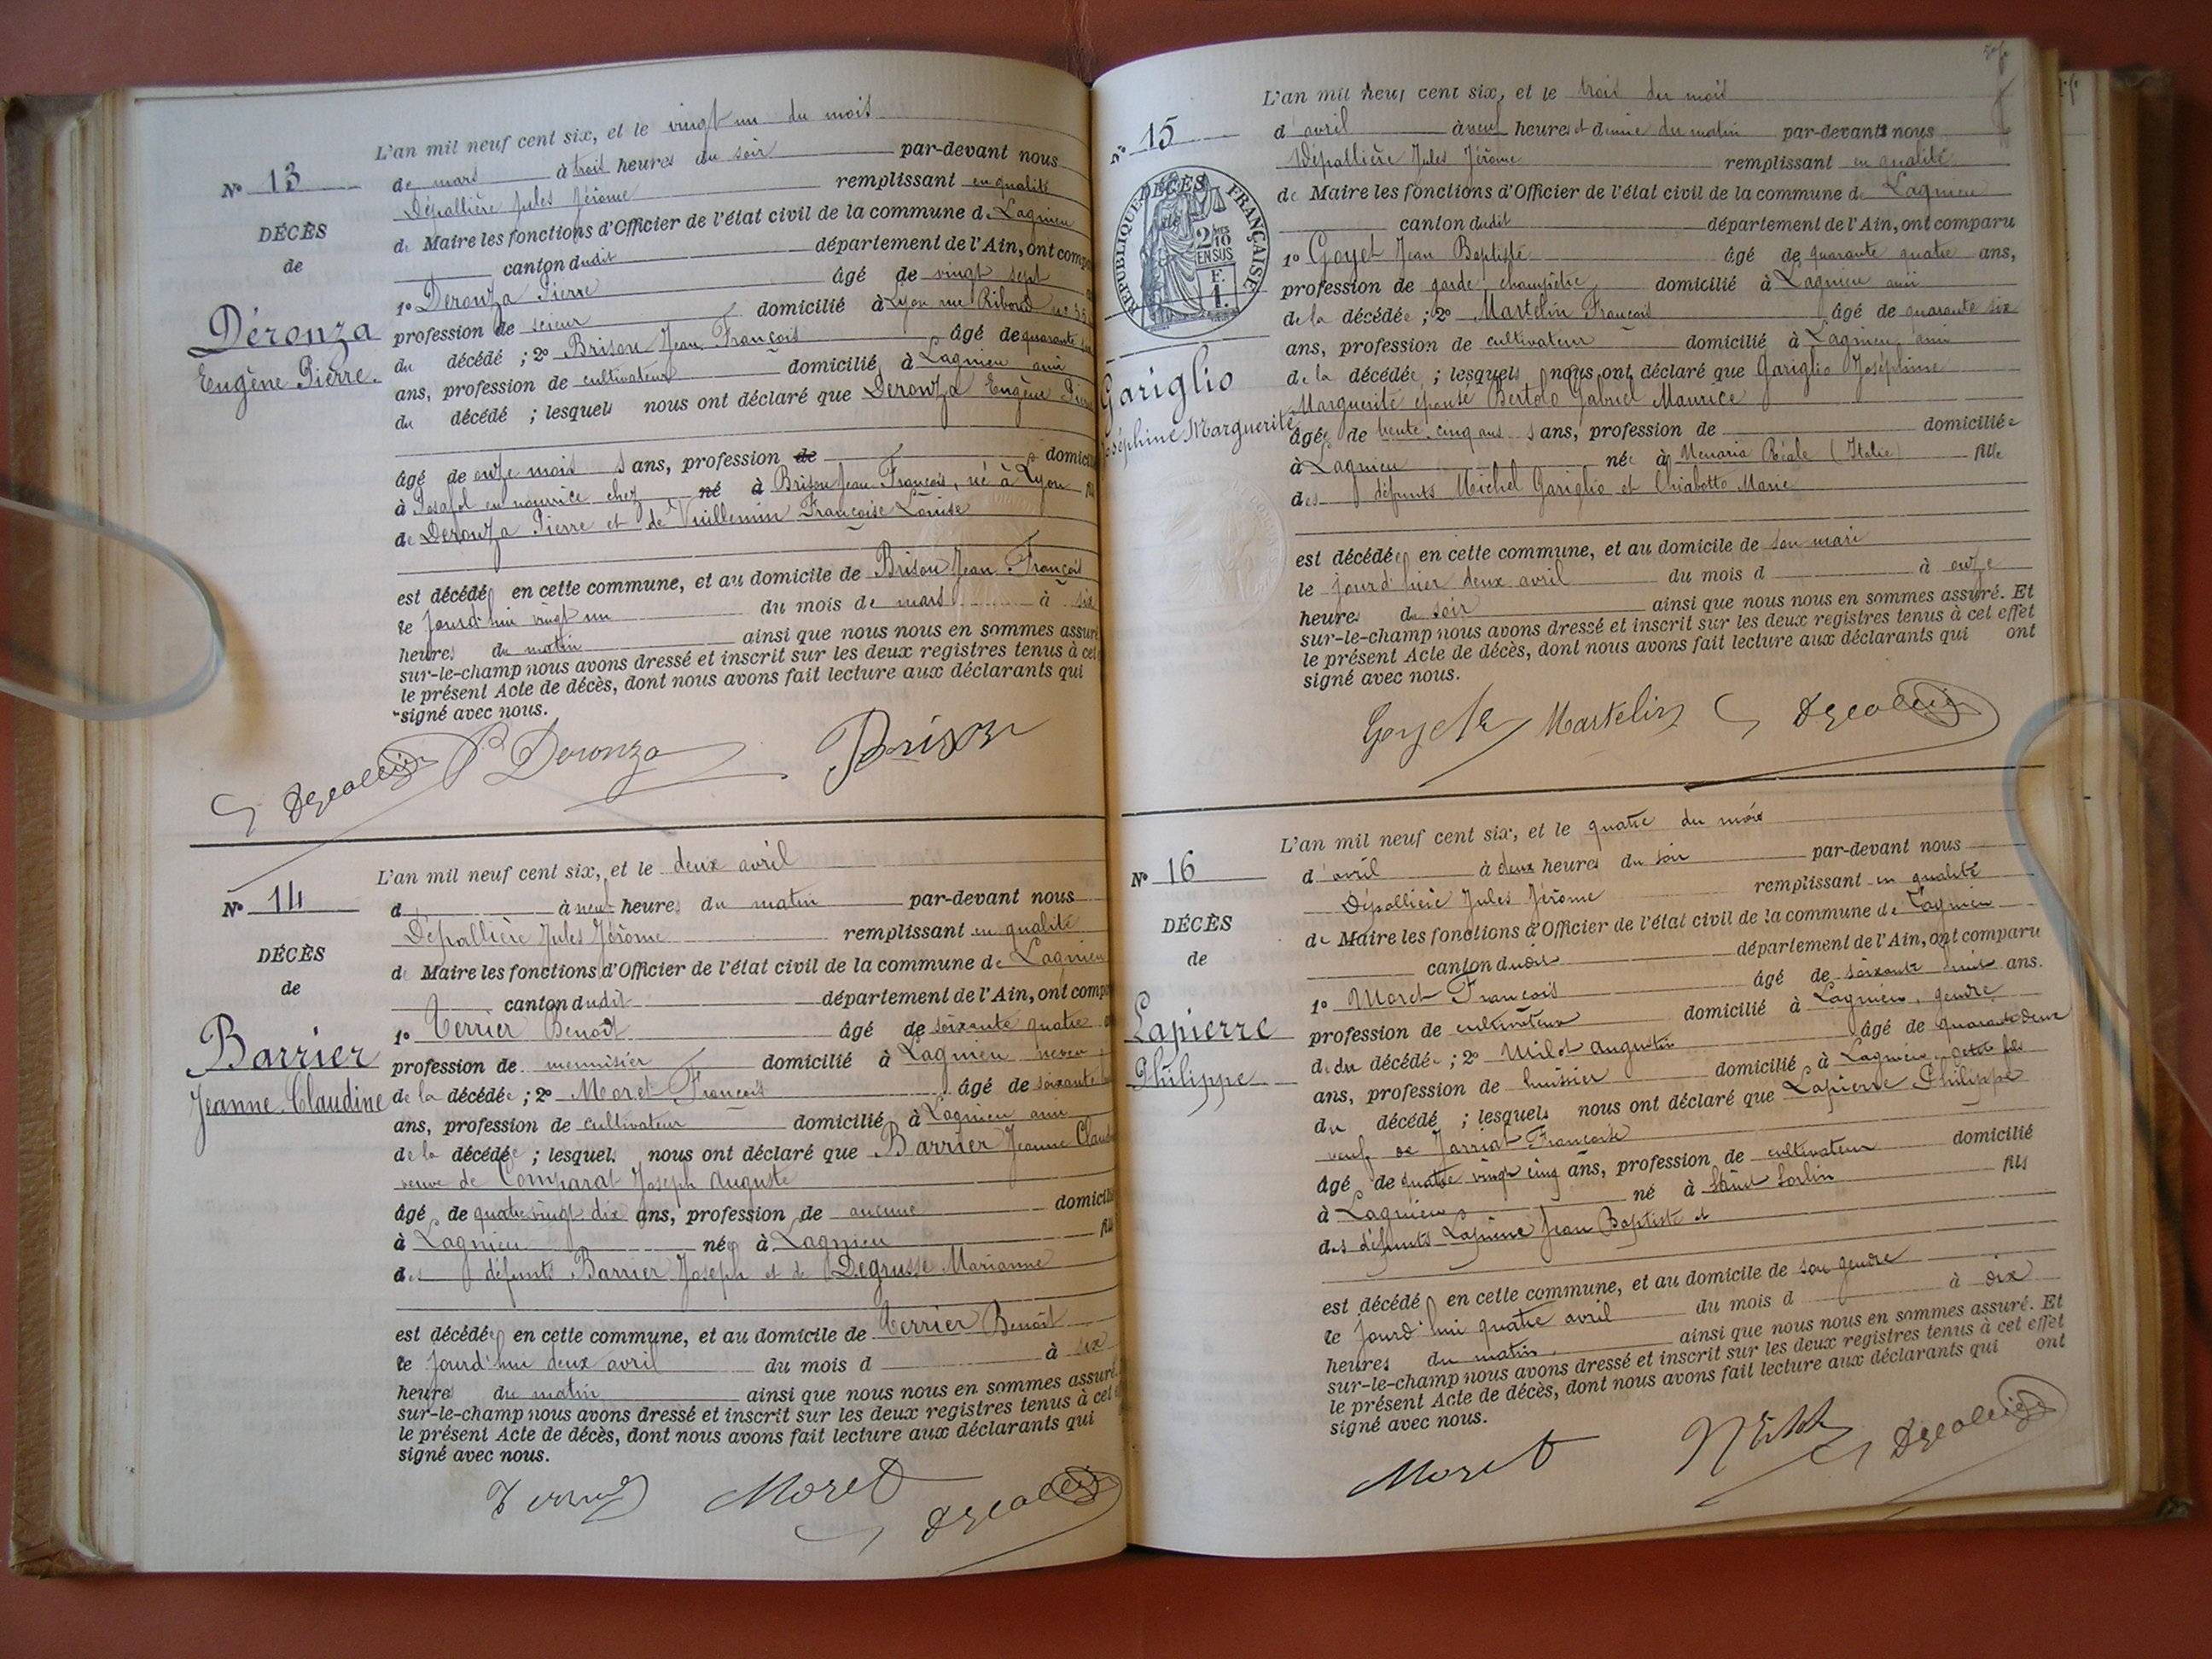 L'an mil neuf cent six, et le vingt un du mois
N° 13
de mars à trois heures du soir par-devant nous
Dépallière Jules Jérôme remplissant en qualité
DÉCÈS
de Maire les fonctions d'Officier de l'état civil de la commune de Lagnieu
de
canton dudit département de l'Ain, ont compa
1° Deronza Pierre âgé de vingt sept
Déronza
Eugène Pierre.
profession de scieur domicilié à Lyon rue Ribord n° 35
du décédé ; 2° Brison Jean François âgé de quarante
ans, profession de cultivateur domicilié à Lagnieu ami
du décédé ; lesquels nous ont déclaré que Deronza Eugène Pierre
âgé de onze mois ans, profession de domicilié
à Posafol en nourrice chez né à Brison Jean François, né à Lyon fils
de Deronza Pierre et de Vuillemin Françoise Louise
est décédé en cette commune, et au domicile de Brison Jean François
le jourd'hui vingt un du mois de mars à six
heures du matin ainsi que nous nous en sommes assuré
sur-le-champ nous avons dressé et inscrit sur les deux registres tenus à cet
le présent Acte de décès, dont nous avons fait lecture aux déclarants qui
signé avec nous.
P Deronza Brison
L'an mil neuf cent six, et le deux avril
N° 14
d à neuf heures du matin par-devant nous
Dépallière Jules Jérôme remplissant en qualité
DÉCÈS
de Maire les fonctions d'Officier de l'état civil de la commune de Lagnieu
de
canton dudit département de l'Ain, ont compa
1° Verrier Benoît âgé de soixante quatre
Barrier
Jeanne Claudine
profession de menuisier domicilié à Lagnieu neveu
de la décédée ; 2° Moret François âgé de soixante
ans, profession de cultivateur domicilié à Lagnieu ami
de la décédée ; lesquels nous ont déclaré que Barrier Jeanne Claud
veuve de Comparat Joseph Auguste
âgé de quatre vingt dix ans, profession de aucune domicilié
à Lagnieu née à Lagnieu fille
des défunts Barrier Joseph et de Degrusse Marianne
est décédée en cette commune, et au domicile de Verrier Benoît
le jourd'hui deux avril du mois d à six
heures du matin ainsi que nous nous en sommes assuré.
sur-le-champ nous avons dressé et inscrit sur les deux registres tenus à cet
le présent Acte de décès, dont nous avons fait lecture aux déclarants qui
signé avec nous.
Moret
L'an mil neuf cent six, et le trois du mois
N° 15
d'avril à neuf heures et demie du matin par-devant nous
Dépallière Jules Jérôme remplissant en qualité
de Maire les fonctions d'Officier de l'état civil de la commune de Lagnieu
DÉCÈS
de
RÉPUBLIQUE FRANÇAISE
2/10 EN SUS
F. 1.
canton dudit département de l'Ain, ont comparu
1° Goyet Jean Baptiste âgé de quarante quatre ans,
profession de garde champêtre domicilié à Lagnieu ami
de la décédée ; 2° Martelin François âgé de quarante six
ans, profession de cultivateur domicilié à Lagnieu, ami
Gariglio
Joséphine Marguerite
de la décédée ; lesquels nous ont déclaré que Gariglio Joséphine
Marguerite épouse Bertolo Gabriel Maurice
âgée de trente cinq ans ans, profession de domiciliée
à Lagnieu née à Venaria Réale (Italie) fille
des défunts Michel Gariglio et Chiabotto Marie
est décédée en cette commune, et au domicile de son mari
le jourd'hier deux avril du mois d à onze
heures du soir ainsi que nous nous en sommes assuré. Et
sur-le-champ nous avons dressé et inscrit sur les deux registres tenus à cet effet
le présent Acte de décès, dont nous avons fait lecture aux déclarants qui ont
signé avec nous.
Goyet Martelin
L'an mil neuf cent six, et le quatre du mois
N° 16
d'avril à deux heures du soir par-devant nous
Dépallière Jules Jérôme remplissant en qualité
DÉCÈS
de Maire les fonctions d'Officier de l'état civil de la commune de Lagnieu
de
canton dudit département de l'Ain, ont comparu
1° Moret François âgé de soixante huit ans.
Lapierre
Philippe
profession de cultivateur domicilié à Lagnieu, gendre
du décédé ; 2° Milot Augustin âgé de quarante deux
ans, profession de huissier domicilié à Lagnieu, petit fils
du décédé ; lesquels nous ont déclaré que Lapierre Philippe
veuf de Jarriat Françoise
âgé de quatre vingt cinq ans, profession de cultivateur domicilié
à Lagnieu né à Saint Sorlin fils
des défunts Lapierre Jean Baptiste et
est décédé en cette commune, et au domicile de son gendre
le jourd'hui quatre avril du mois d à dix
heures du matin ainsi que nous nous en sommes assuré. Et
sur-le-champ nous avons dressé et inscrit sur les deux registres tenus à cet effet
le présent Acte de décès, dont nous avons fait lecture aux déclarants qui ont
signé avec nous.
Moret